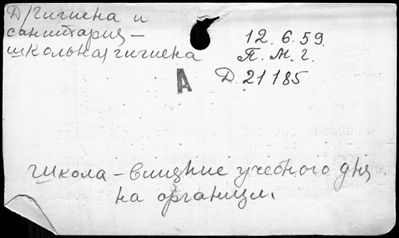 Д/гигиена и
санитария –
школьная гигиена
12.6.59.
П.М.Г.
А
Д.21185
школа – влияние учебного дня
на организм.